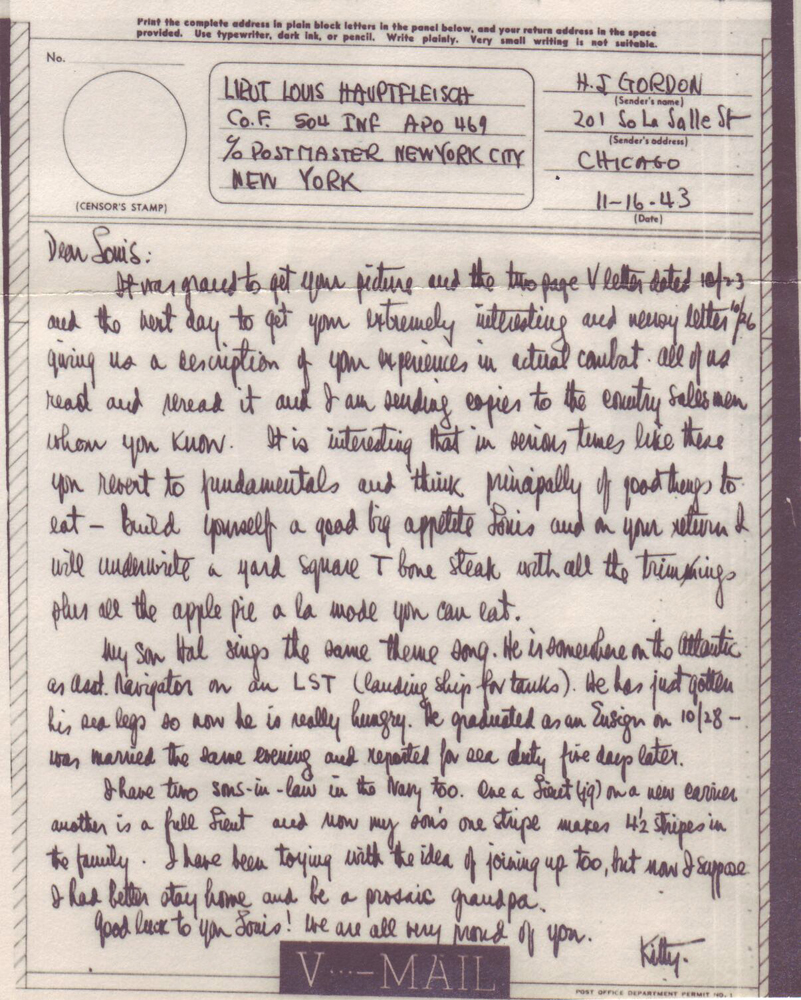 Print the complete address in plain block letters in the panel below, and your return address in the space
provided. Use typewriter, dark ink, or pencil. Write plainly. Very small writing is not suitable.
No.
(CENSOR'S STAMP)
LIEUT LOUIS HAUPTFLEISCH
Co. F. 504 INF APO 469
℅ POSTMASTER NEW YORK CITY
NEW YORK
H. J GORDON
(Sender's name)
201 So La Salle St
(Sender's address)
CHICAGO
11-16-43
(Date)
Dear Louis:
It was grand to get your picture and the two page V letter dated 10/23
and the next day to get your extremely interesting and newsy letter 10/26
giving us a description of your experiences in actual combat. All of us
read and reread it and I am sending copies to the country salesmen
whom you know. It is interesting that in serious times like these
you revert to fundamentals and think principally of good things to
eat - Build yourself a good big appetite Louis and on your return I
will underwrite a yard square T bone steak with all the trimmings
plus all the apple pie a la mode you can eat.
My son Hal sings the same theme song. He is somewhere on the Atlantic
as asst. Navigator on an LST (landing ship for tanks). He has just gotten
his sea legs so now he is really hungry. He graduated as an Ensign on 10/28 -
was married the same evening and reported for sea duty five days later.
I have two sons-in-law in the Navy too. One a Lieut (jg) on a new carrier
another is a full Lieut and now my son's one stripe makes 4½ stripes in
the family. I have been toying with the idea of joining up too, but now I suppose
I had better stay home and be a prosaic grandpa.
Good luck to you Louis! We are all very proud of you.
Kitty.
V···—MAIL
POST OFFICE DEPARTMENT PERMIT NO. 1